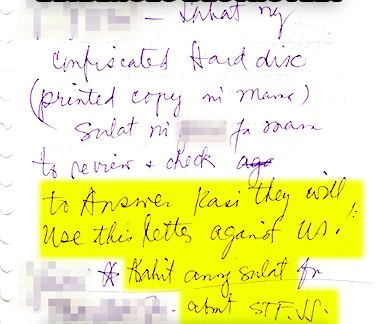 — Lahat ng
confiscated Hard disc
(printed copy ni Mama)
Sulat ni for mam
to review & check ago
to Answer Kasi they will
use this letter against us.!
* Kahit anong sulat fr
about STF.